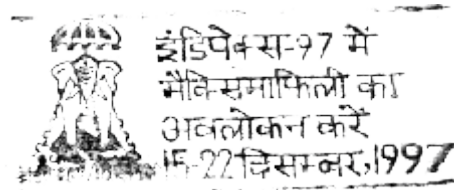 इंडिपेक्स-97 में
मैक्सिमाफिली का
अवलोकन करें
15-22 दिसम्बर, 1997